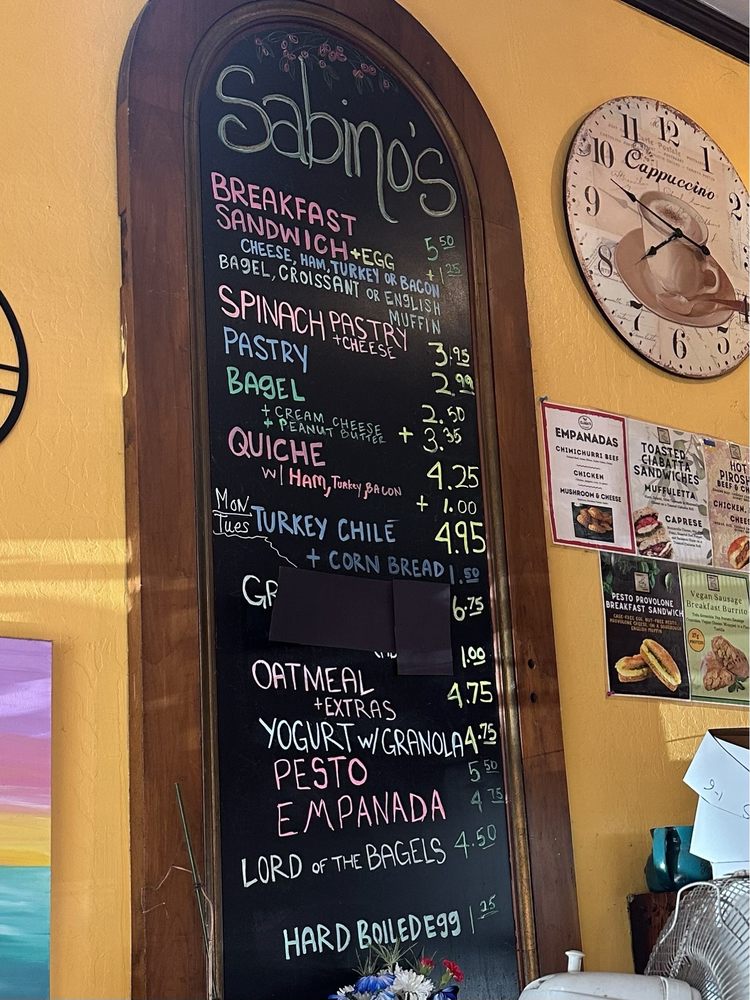 Sabino's
BREAKFAST
SANDWICH +EGG 5.50
CHEESE, HAM, TURKEY OR BACON +1.25
BAGEL, CROISSANT OR ENGLISH
MUFFIN
SPINACH PASTRY
+CHEESE 3.95
PASTRY 2.99
BAGEL 2.50
+ CREAM CHEESE
+ PEANUT BUTTER + 3.35
QUICHE 4.25
W/ HAM, Turkey BACON + 1.00
MON
Tues TURKEY CHILE 4.95
+ CORN BREAD 1.50
GR 6.75
1.00
OATMEAL 4.75
+EXTRAS
YOGURT W/GRANOLA 4.75
PESTO 5.50
EMPANADA 4.75
LORD OF THE BAGELS 4.50
HARD BOILED Egg 1.25
Cappuccino
11 12 1
10 2
9
8
7 6 5
EMPANADAS
CHIMICHURRI BEEF
CHICKEN
MUSHROOM & CHEESE
TOASTED
CIABATTA
SANDWICHES
MUFFULETTA
CAPRESE
HOT
PIROSH
BEEF & CH
CHICKEN,
CHEE
PESTO PROVOLONE
BREAKFAST SANDWICH
CAGE-FREE EGG, NUT-FREE PESTO
PROVOLONE CHEESE, ON A SOURDOUGH
ENGLISH MUFFIN
Vegan Sausage
Breakfast Burrito